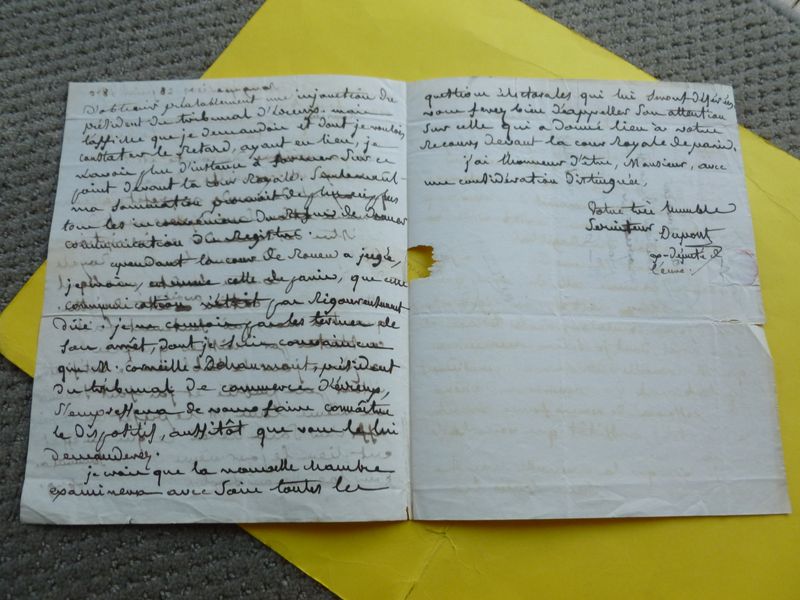 d'obtenir préalablement une injonction du
président du tribunal d'Evreux. mais
l'affiche que je demandois et dont je voulois
constater le retard, ayant eu lieu, je
n'avois plus d'instance à former sur ce
point devant la cour Royale. Seulement
ma
tous les du de
communication du Registre.
cependant la cour de Rouen a jugé,
je crois, comme celle de paris, que cette
communication n'étoit pas rigoureusement
Düe. je ne connois pas les termes de
Son arrêt, dont je suis
que M. corneille président
du tribunal de commerce d'évreux,
s'empressera de vous faire connoître
le dispositif, aussitôt que vous le lui
demanderez.
je crois que la nouvelle chambre
examinera avec soin toutes les
questions électorales qui lui seront déférées
vous ferez bien d'appeller son attention
sur celle qui a donné lieu à votre
recours devant la cour royale de paris.
j'ai l'honneur d'être, Monsieur, avec
une considération distinguée,
Votre très humble
Serviteur Dupont
ex-député de
l'eure.